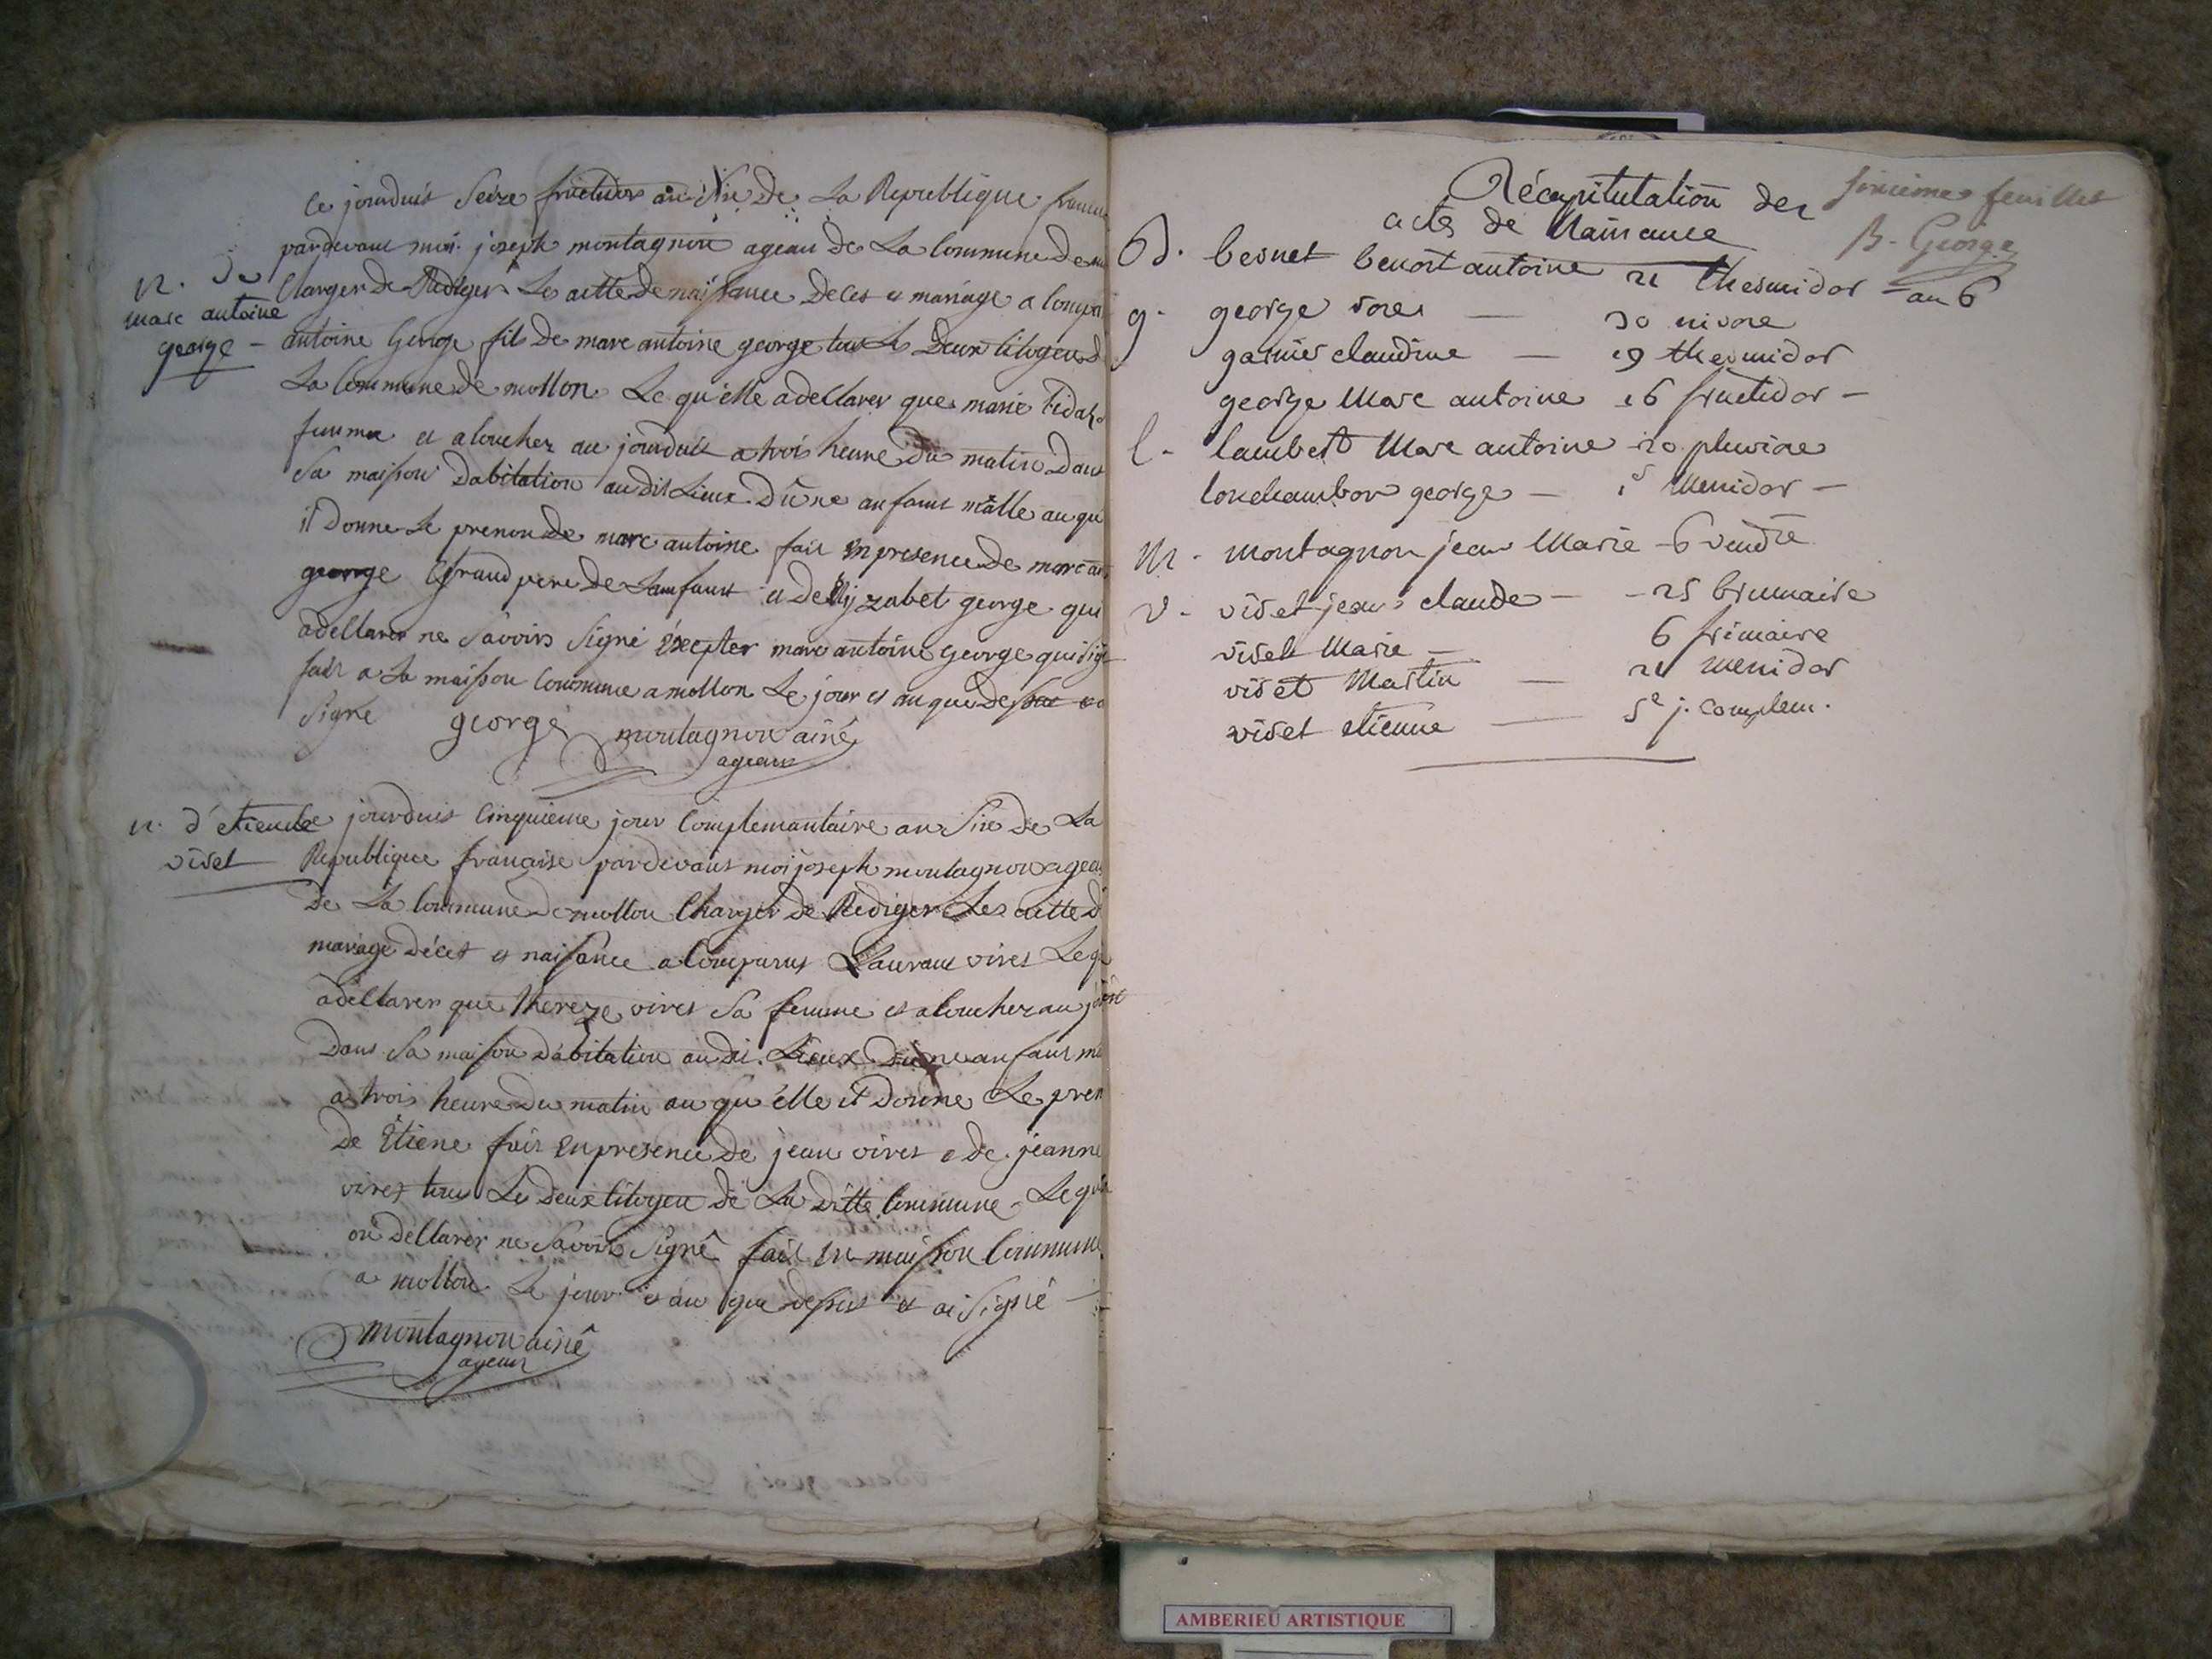 n. de
marc antoine
george
ce jourduis seize fructidor an six de La Republique
pardevant moi joseph montagnon ageau de La Commune de
Charger de Rediger Les actte de naissance deces et mariage a
antoine George fils de marc antoine george tous Les Deux Citoyen
La Commune de mollon Le qu'elle a declarer que marie
fumme et acoucher au jourduis a trois heure du matin dans
Sa maison Dabitation audit Lieux D'une anfant mâlle au
il Donne Le prenon de marc antoine fait en presence de marc
george Grand pere de Lanfant et de george qui
a dellarer ne Savoirs Signé éxcepter marc antoine george
fait a La maison Commune a mollon Le jour et an que dessus
Signé george montagnon ainé
ageau
n. d'etienne
viret
Ce jourduis Cinquieme jour Complemantaire an Six de La
Republique française pardevant moi joseph montagnon
de La Commune de mollon Charger de Rediger Les actte
mariage déces et naissance a Comparut Laurant viret
a dellarer que thereze viret Sa femme et acoucher au
Dans Sa maison d'abitation audi Lieux D'une anfant
a trois heure du matin au qu'elle il Donne Le
De Étiene fait en presence de jean viret e de jeanne
viret tous Les Deux Citoyen de La ditte Commune
on dellarer ne Savoirs Signê fait en maison Commune
a mollon Le jour et an que dessus et ai Signé
montagnon ainê
ageau
sixieme feuillet
B. George
Récapitulation des
actes de Naissance
B. bernet benoit antoine 21 thermidor an 6
g. george 30 nivose
garnier claudine — 19 thermidor
george Marc antoine 16 fructidor —
l. lambert Marc antoine 20 pluviose
lonchambon george — Messidor —
M. montagnon jean Marie 6 vendre
v. viret jean claude — 25 brumaire
viret Marie — 6 frimaire
viret Martin — 21 messidor
viret etienne — 5e j. complem.
AMBERIEU ARTISTIQUE